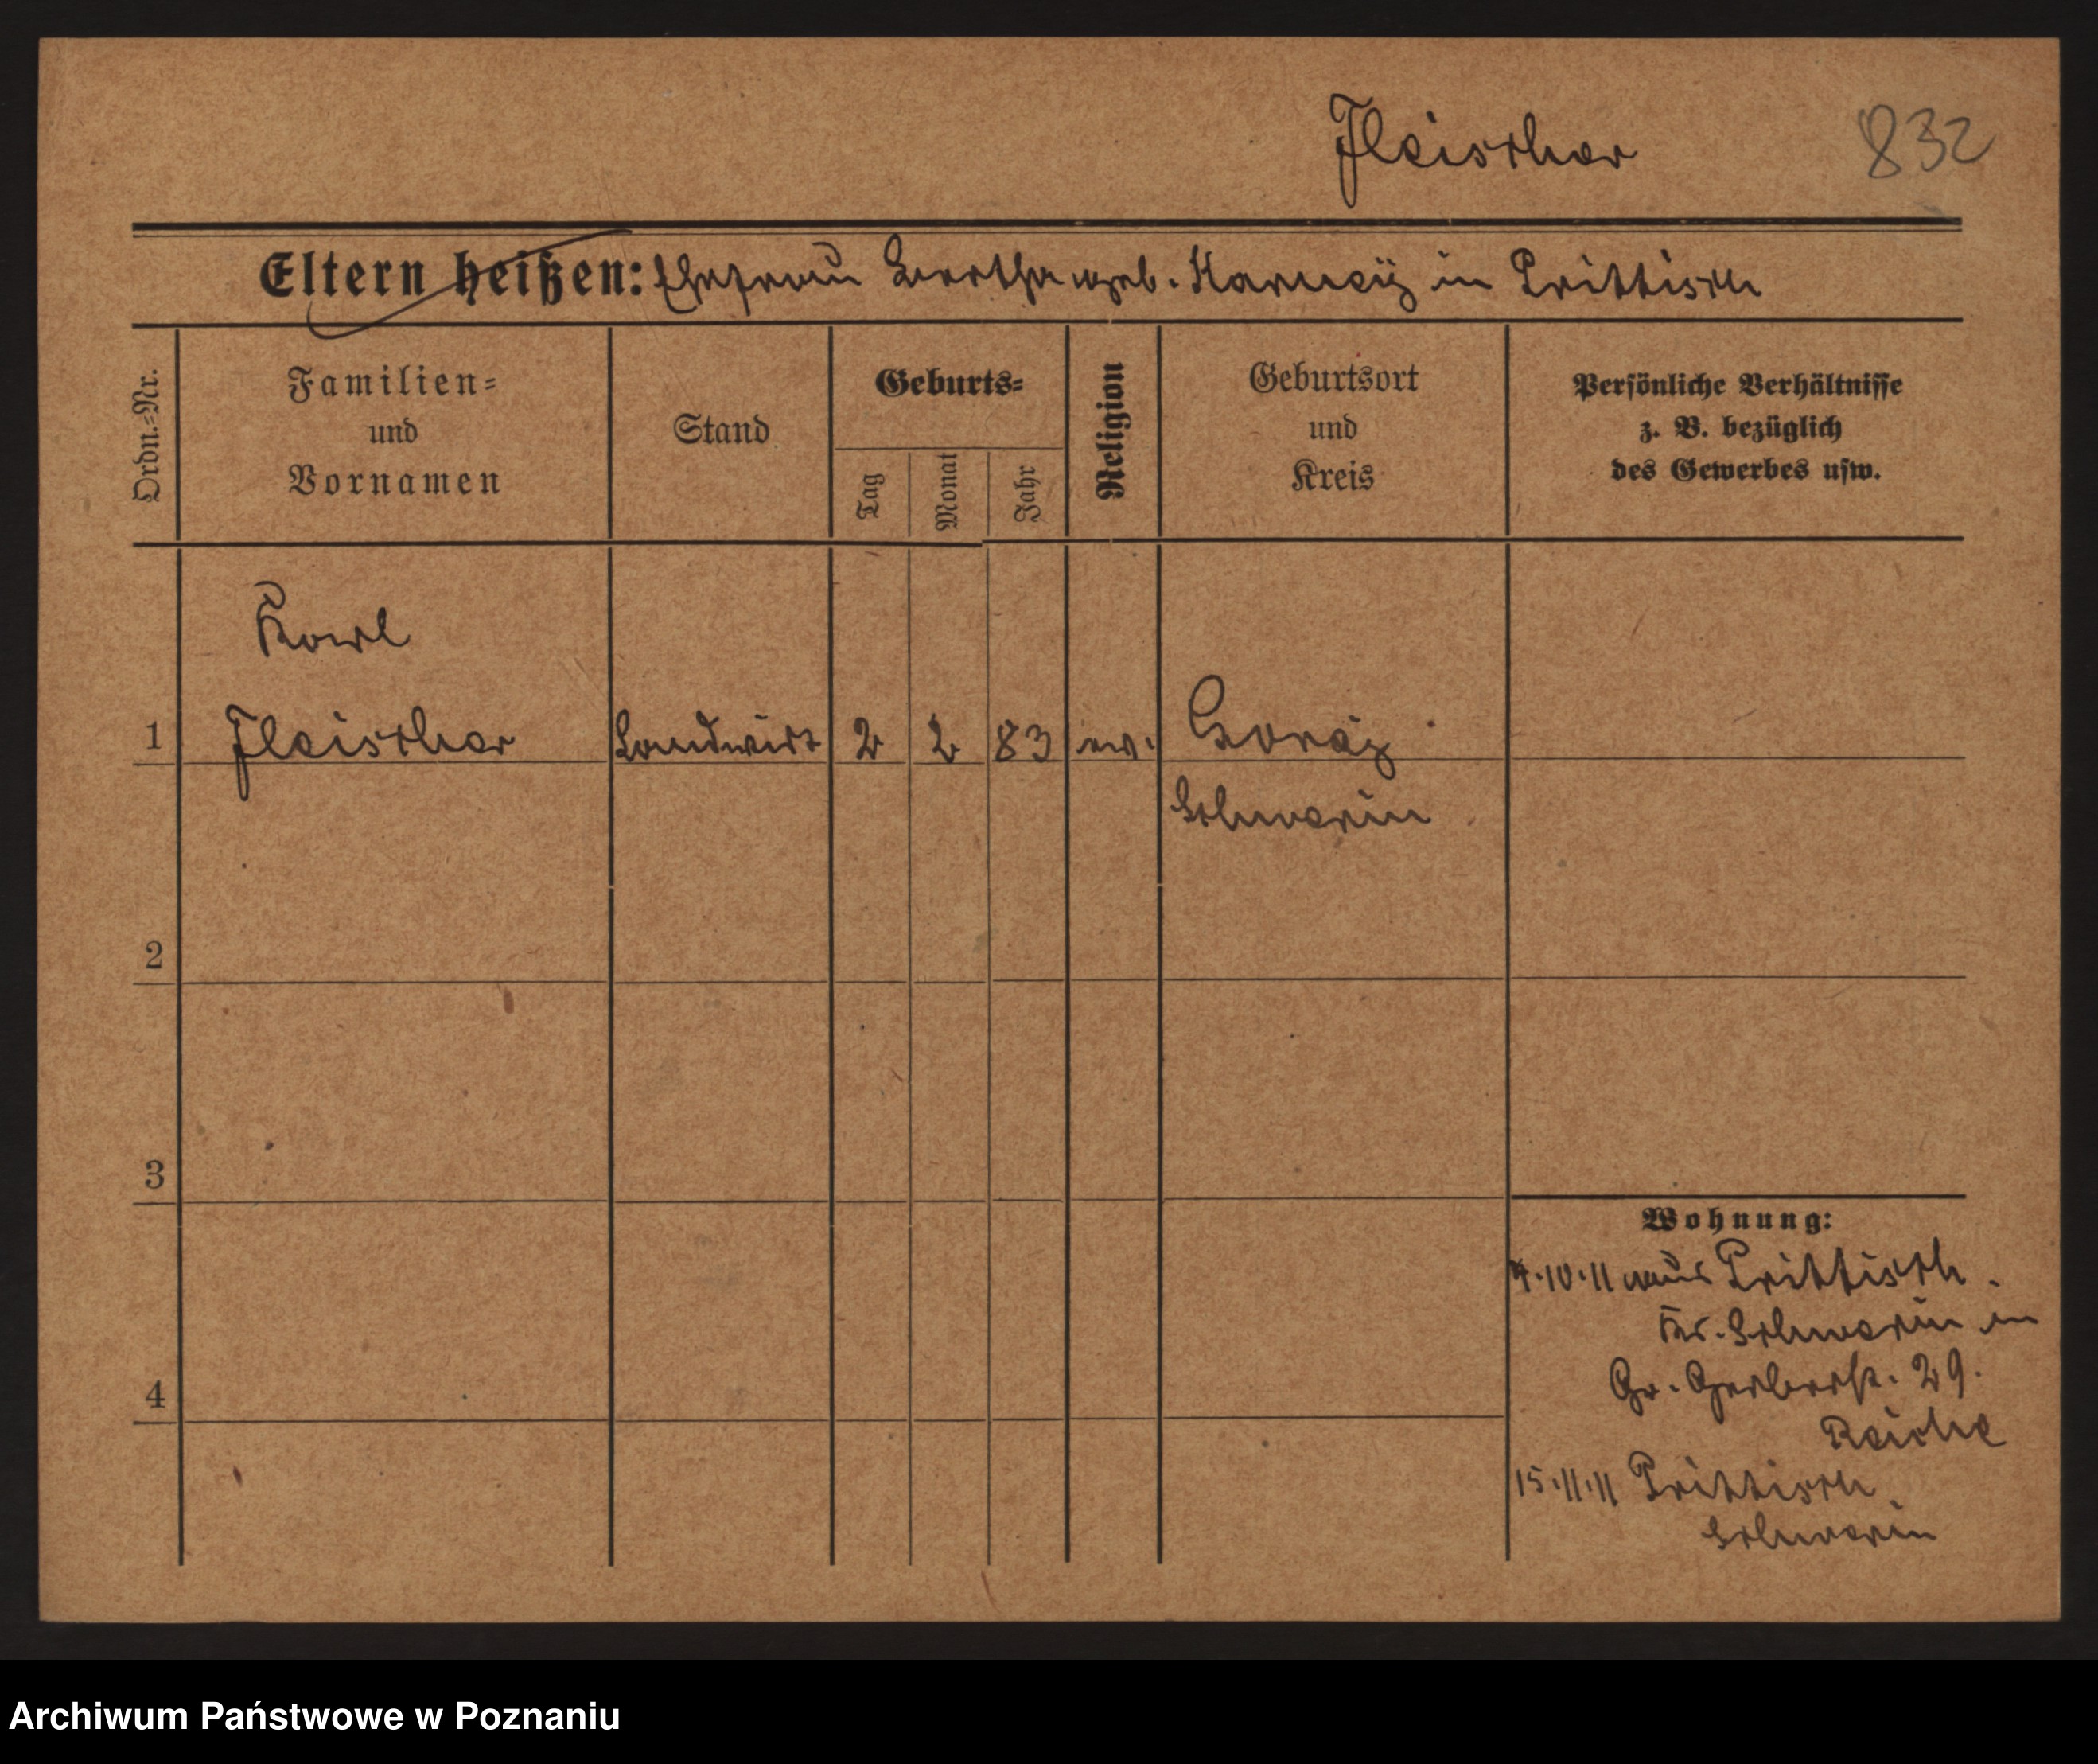 Fleischer 832
Eltern heißen: Ehefrau Bertha geb. in Prittisch
Ordn.=Nr.
Familien=
und
Vornamen
Stand
Geburts=
Tag
Monat
Jahr
Religion
Geburtsort
und
Kreis
Persönliche Verhältnisse
z. B. bezüglich
des Gewerbes usw.
Karl
1 Fleischer Landwirt 2 2 83 ev.
Schwerin
2
3
4
Wohnung:
4.10.11 aus Prittisch.
Kr. Schwerin in
Gr. Gerberst. 29.
Reiche
15.11.11 Prittisch
Schwerin
Archiwum Państwowe w Poznaniu